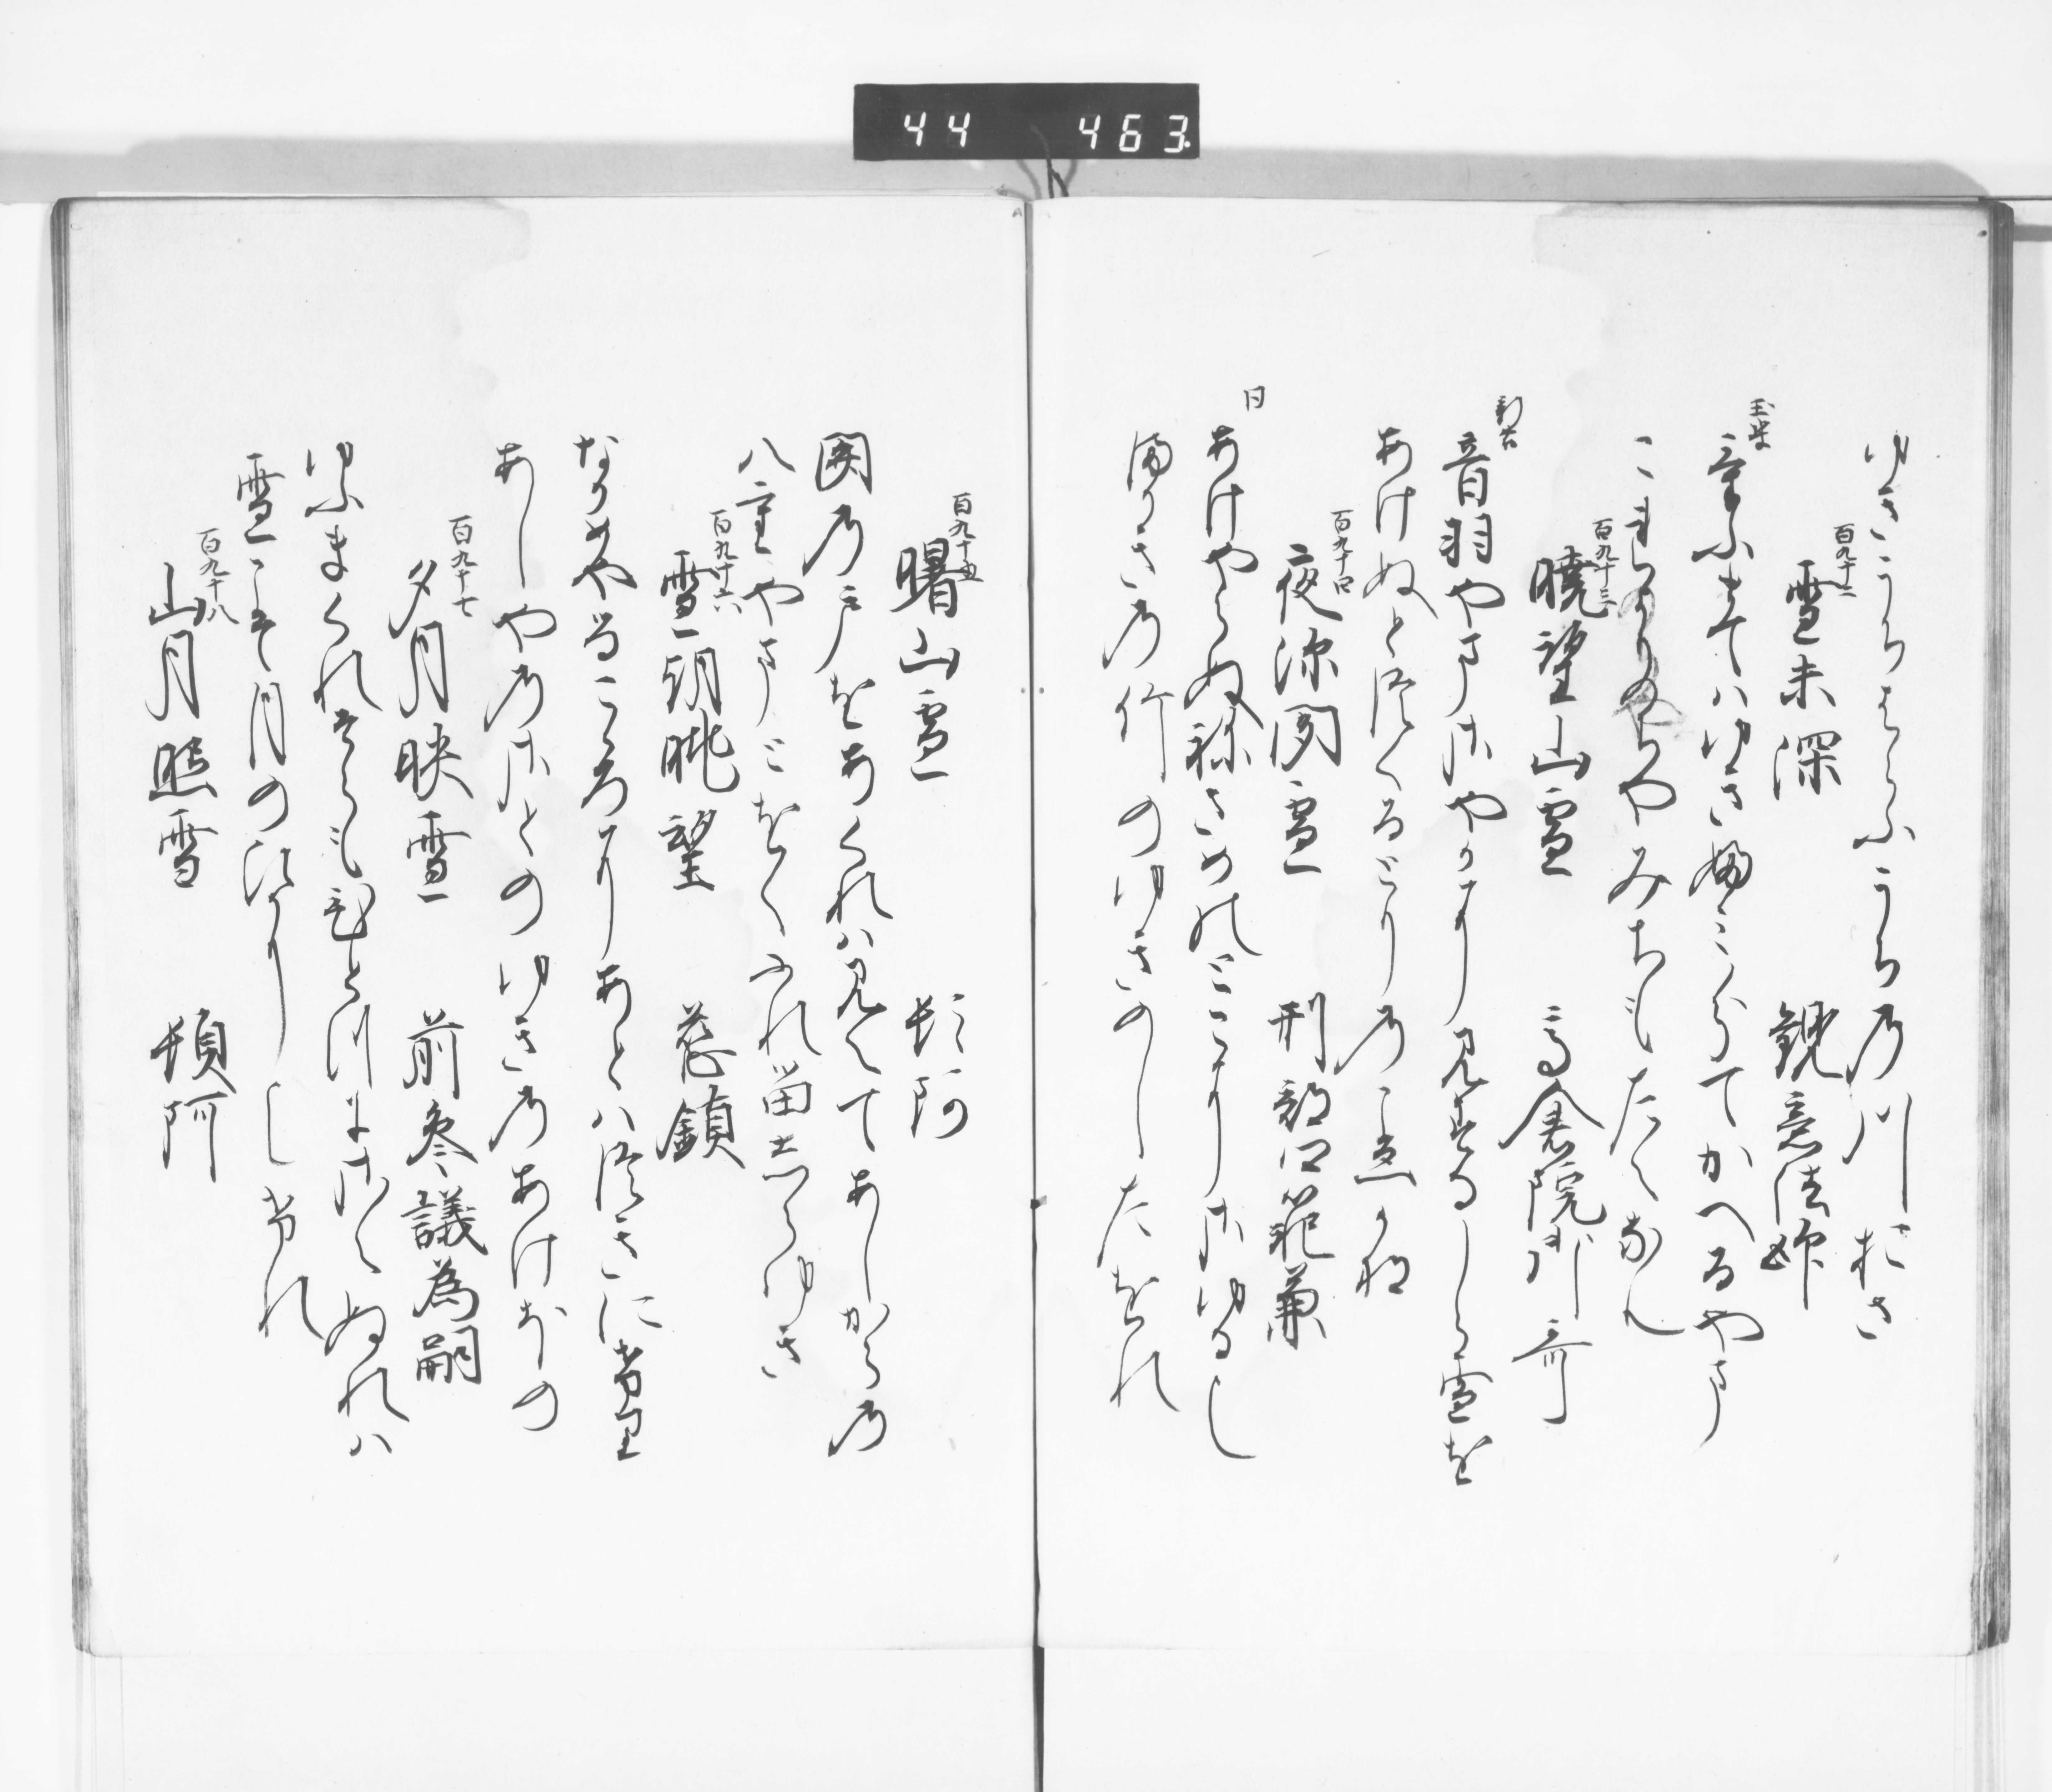 44 463
ゆきうちはらふうちの川おさ
百九十二
雪未深 観意法師
玉葉
幸ふみてはゆきふみ分てかへるやま
これよりのちやみちもたえなん
百九十三
暁望山雪 高倉院御哥
新古
音羽やまさやかに見するしら雪を
あけぬとつくるとりのこゑかな
百九十四
夜深聞雪 刑部卿範兼
同
あけやらぬねさめのとこにきこゆなり
まかきの竹のゆきのしたをれ
百九十五
曙山雪 頓阿
関の戸をあくれは見えてあしからの
八重やまとをくふれるしらゆき
百九十六
雪朝眺望 慈鎮
なかめやるこゝろにあとはつきにけり
あしやのさとのゆきのあけほの
百九十七
夕月映雪 前参議為嗣
ゆふまくれそらもひとつにさえぬれは
雪こそ月のひかりなりけれ
百九十八
山月照雪 頓阿